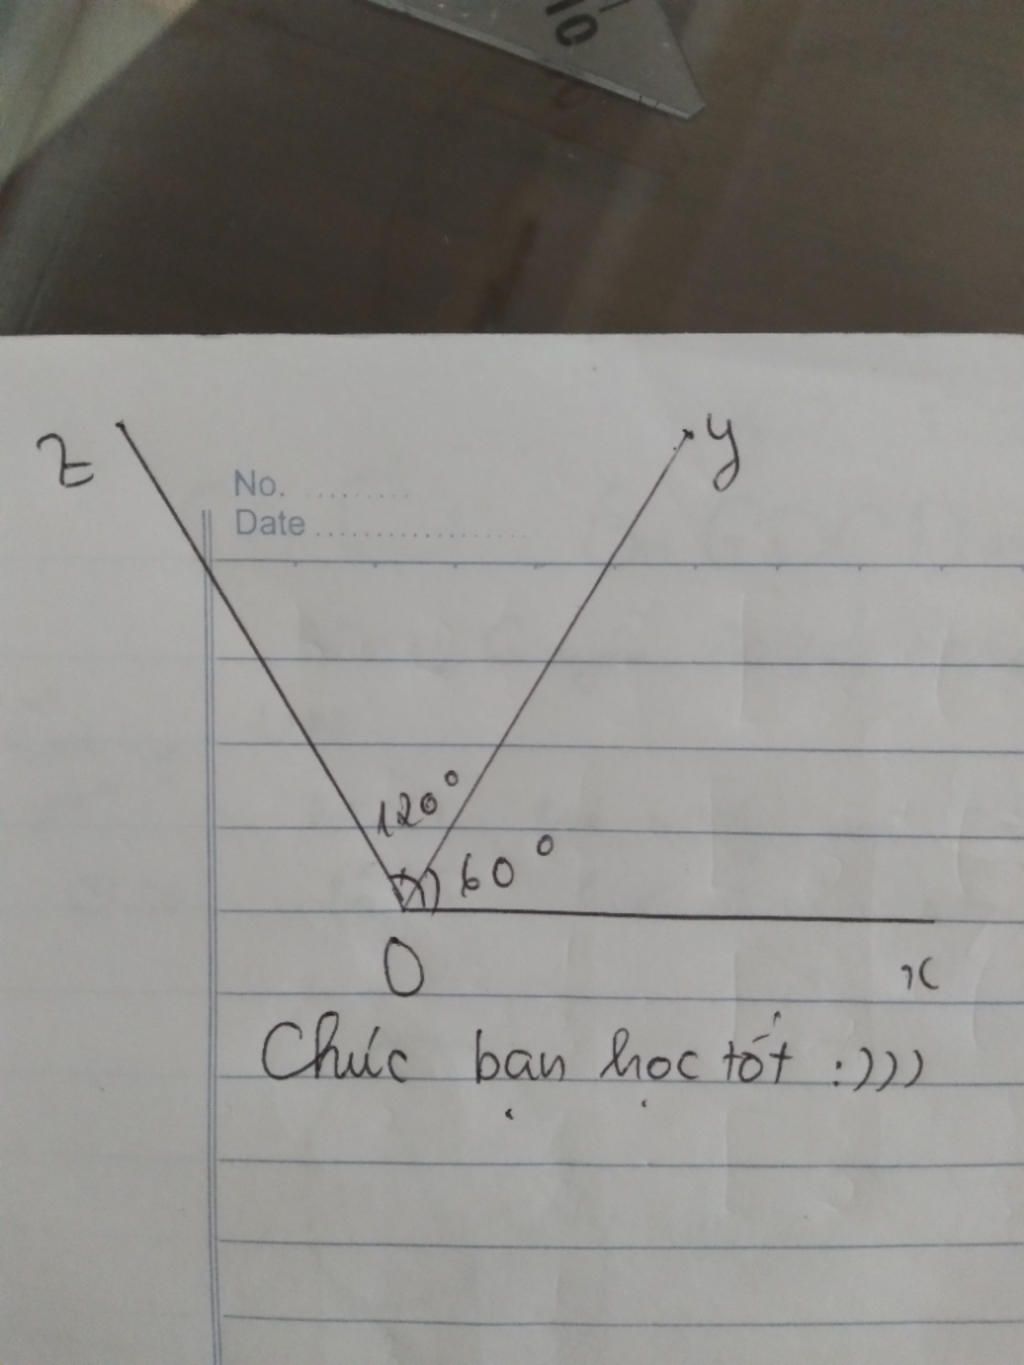 z
y
No. ..........
Date ..................
120°
60°
O
x
Chúc bạn học tốt :)))